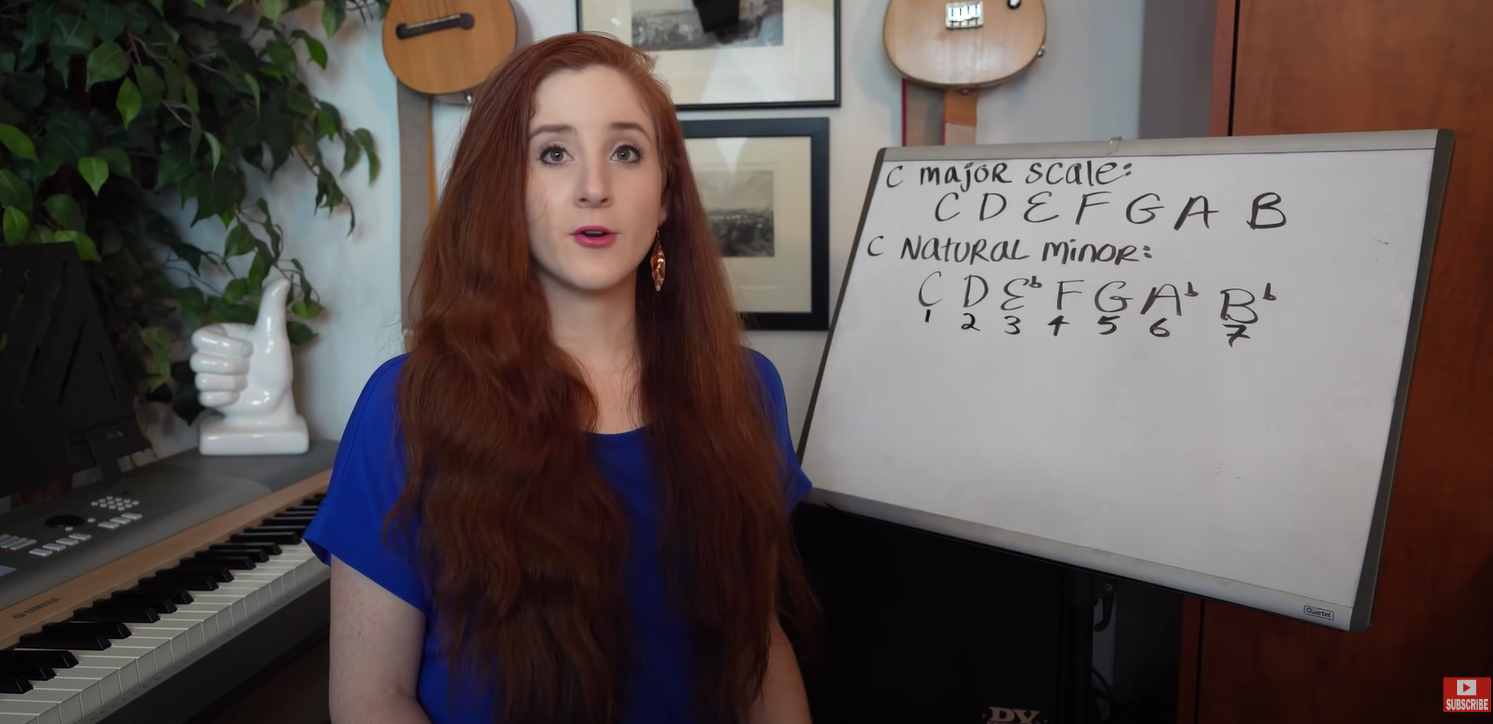 C major scale:
C D E F G A B
C Natural minor:
C D E♭ F G A♭ B♭
1 2 3 4 5 6 7
Quartet
YAMAHA
DV
SUBSCRIBE